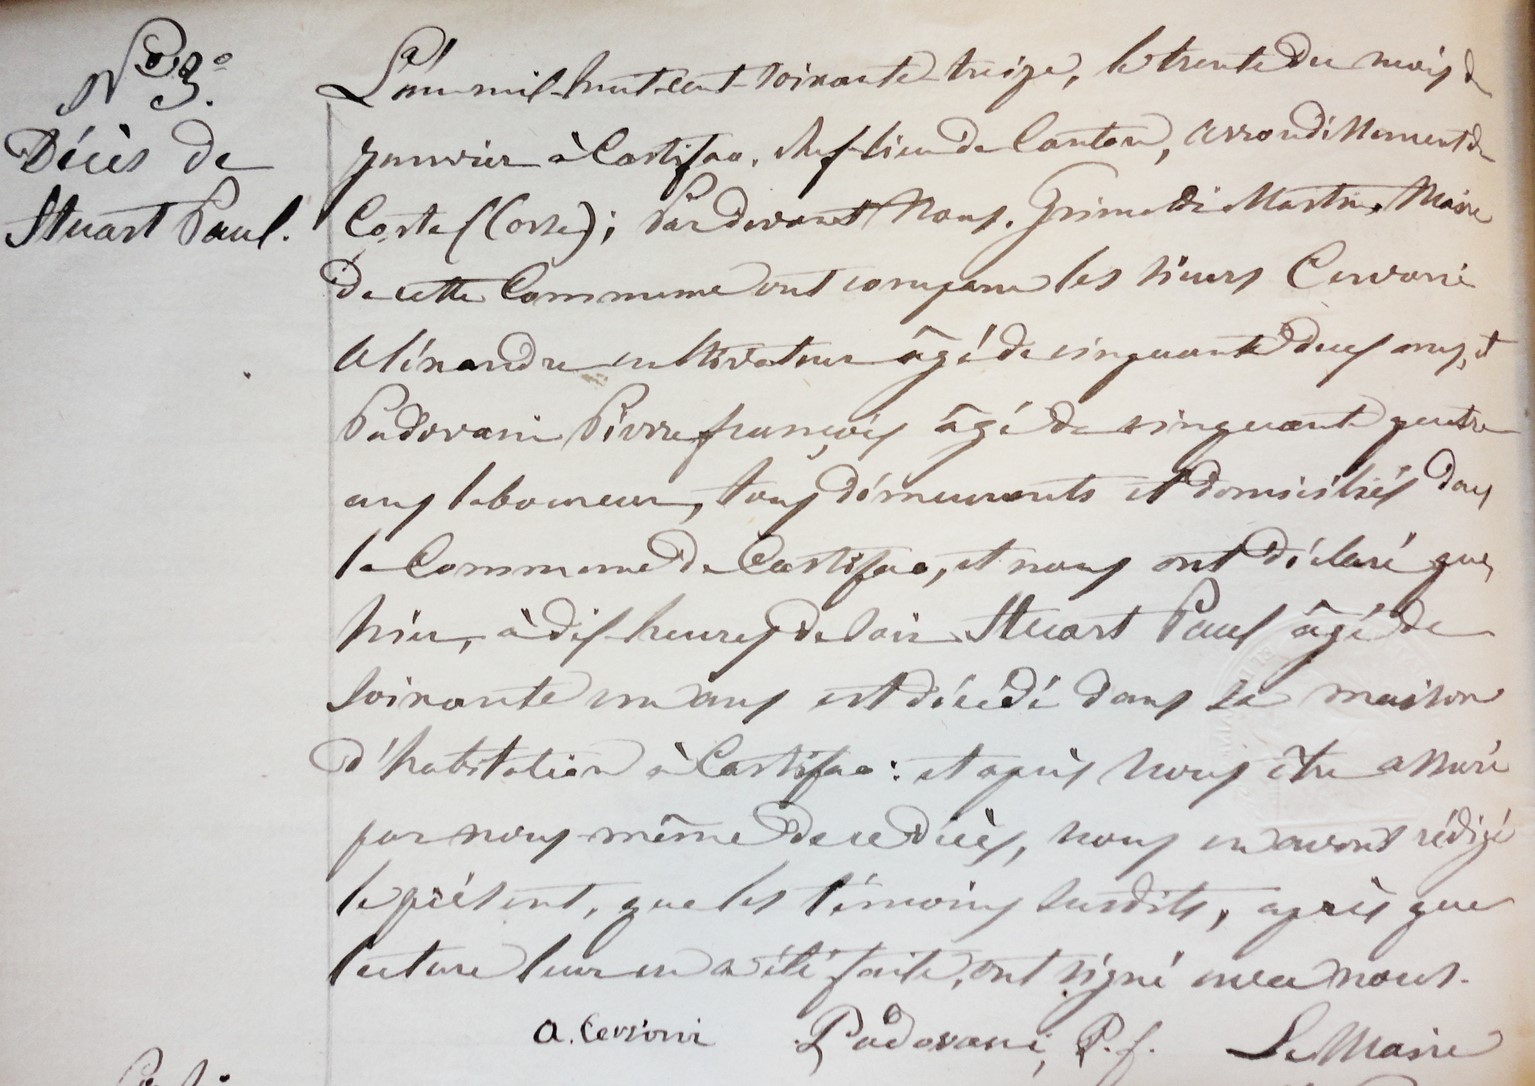 N° 3°
Décès de
Stuart Paul.
L'an mil huit cent soixante treize, le trente du mois de
janvier à Castifao, chef lieu de Canton, arrondissement de
Corte (Corse); Pardevant Nous, Grimaldi Martin, Maire
de cette Commune ont comparu les sieurs Cervoni
Alexandre cultivateur âgé de cinquante deux ans, et
Padovani Pierre françois âgé de cinquante quatre
ans laboureur, tous démeurants et domiciliés dans
la Commune de Castifao, et nous ont déclaré que,
hier, à dix heures de soir Stuart Paul âgé de
soixante un ans est décédé dans sa maison
d'habitation à Castifao: et après nous être assuré
par nous même de ce décès, nous en avons rédigé
le présent, que les témoins susdits, après que
lecture leur en a été faite, ont signé avec nous.
A. Cervoni Padovani, P. f. Le Maire